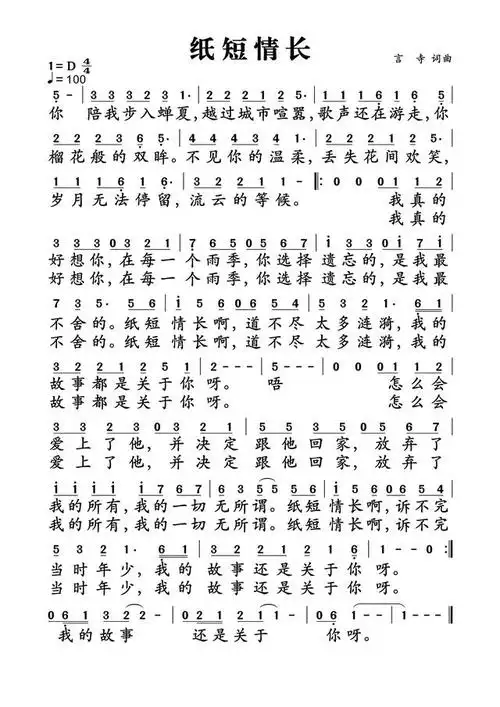 纸短情长
1=D 4/4
♩=100
言 寺 词曲
5 - | 3 3 2 3 1 · | 2 2 2 1 2 5 · | 1 1 1 6 1 6 5
你 陪我步入蝉夏,越过城市喧嚣,歌声还在游走,你
2 2 2 3 6 5 · | 4 4 4 3 4 · | 3 3 3 2 1 2 ·
榴花般的双眸。不见你的温柔,丢失花间欢笑,
1 1 1 6 1 6 · | 3 2 2 1 1 - ‖: 0 0 0 1 1 2
岁月无法停留,流云的等候。 我真的
我真的
3 3 3 0 3 2 1 | 7 6 5 0 5 6 7 | i 3 3 0 i 7 i
好想你,在每一个雨季,你选择遗忘的,是我最
好想你,在每一个雨季,你选择遗忘的,是我最
7 3 5 · 5 6 | i 5 6 0 6 5 4 | 5 3 2 1 · 6 1
不舍的。纸短 情长啊,道不尽 太多涟漪,我的
不舍的。纸短 情长啊,道不尽 太多涟漪,我的
3 2 2 1 2 1 5 | 2 - - - | 5 - - - | 0 0 0 6 1
故事都是关于你呀。 唔 怎么会
故事都是关于你呀。 怎么会
3 3 2 3 0 2 1 | 7 6 5 0 5 6 7
爱上了他,并决定 跟他回家,放弃了
爱上了他,并决定 跟他回家,放弃了
我的所有,我的一切 无所谓。纸短 情长啊,诉不完
我的所有,我的一切 无所谓。纸短 情长啊,诉不完
5 3 2 1 · 6 1 | 3 2 2 1 2 1 6 | 1 - - 0 :‖
当时年少,我的 故事还是关于你呀。
当时年少,我的 故事还是关于你呀。
0 6 1 3 2 - | 0 2 1 2 1 | 0 6 1 1 - | 1 - - - ‖
我的故事 还是关于 你呀。